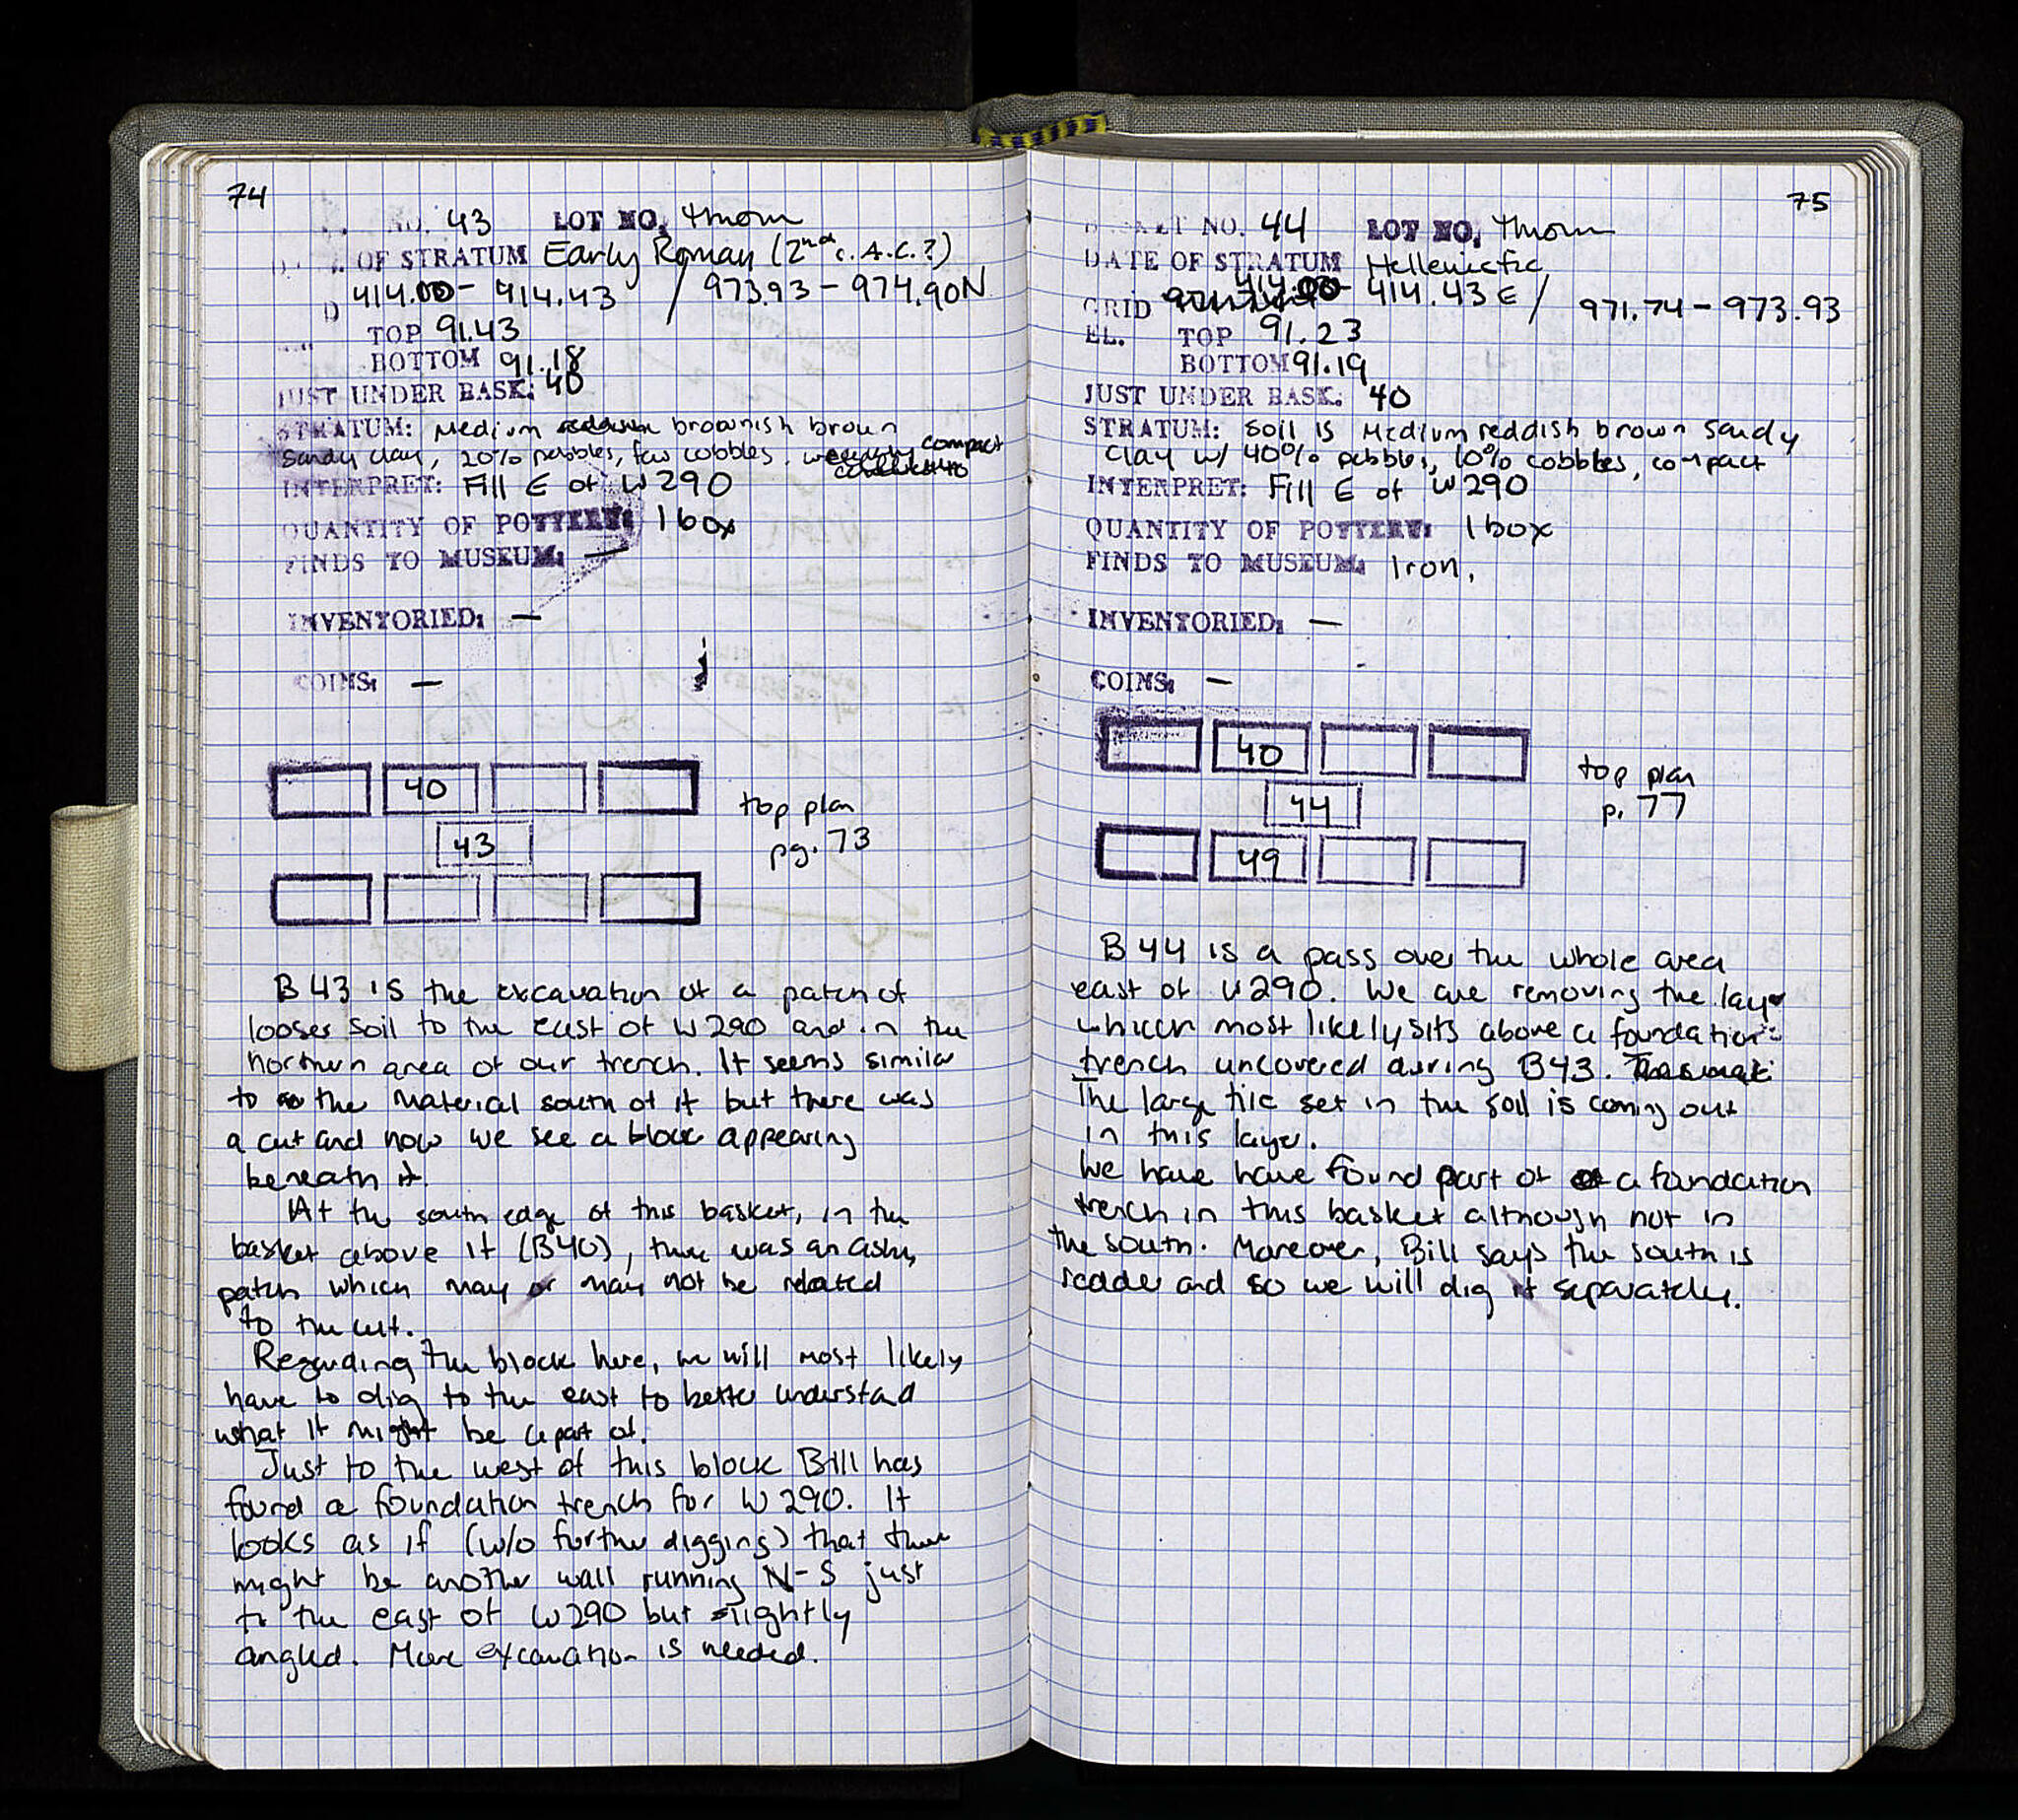 74
NO. 43 LOT NO. thrown
OF STRATUM Early Roman (2nd c. A.C.?)
D 414.00 - 414.43 / 973.93 - 974.90N
TOP 91.43
BOTTOM 91.18
JUST UNDER BASK: 40
STRATUM: Medium brownish brown
sandy clay, 20% pebbles, few cobbles, compact
INTERPRET: Fill E of W290
QUANTITY OF POTTERY: 1 box
FINDS TO MUSEUM: —
INVENTORIED: —
COINS: —
40
43
top plan
pg. 73
B 43 is the excavation of a patch of
looser soil to the east of W290 and in the
northern area of our trench. It seems similar
to the material south of it but there was
a cut and now we see a block appearing
beneath it.
At the south edge of this basket, in the
basket above it (B40), there was an ashy
patch which may or may not be related
to the cut.
Regarding the block here, we will most likely
have to dig to the east to better understad
what it might be a part of.
Just to the west of this block Bill has
found a foundation trench for W290. It
looks as if (w/o further digging) that there
might be another wall running N-S just
to the east of W290 but slightly
angled. More excavation is needed.
75
BASKET NO. 44 LOT NO. thrown
DATE OF STRATUM Hellenistic
GRID 414.00- 414.43 E / 971.74 - 973.93
EL. TOP 91.23
BOTTOM 91.19
JUST UNDER BASK. 40
STRATUM: Soil is medium reddish brown sandy
clay w/ 40% pebbles, 10% cobbles, compact
INTERPRET: Fill E of W290
QUANTITY OF POTTERY: 1 box
FINDS TO MUSEUM: Iron,
INVENTORIED: —
COINS: —
40
44
49
top plan
p. 77
B 44 is a pass over the whole area
east of W290. We are removing the layer
which most likely sits above a foundation
trench uncovered during B43.
The large tile set in the soil is coming out
in this layer.
We have have found part of a foundation
trench in this basket although not in
the south. Moreover, Bill says the south is
redder and so we will dig it separately.